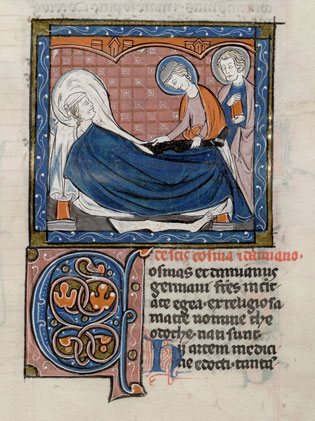 scis cosma ⁊ damiano.
Cosmas et damianus
germani fr̄es in ciuit
ate egea. ex religiosa
matre nomine the
otoche. nati sunt
Hij artem medici
ne edocti tantā